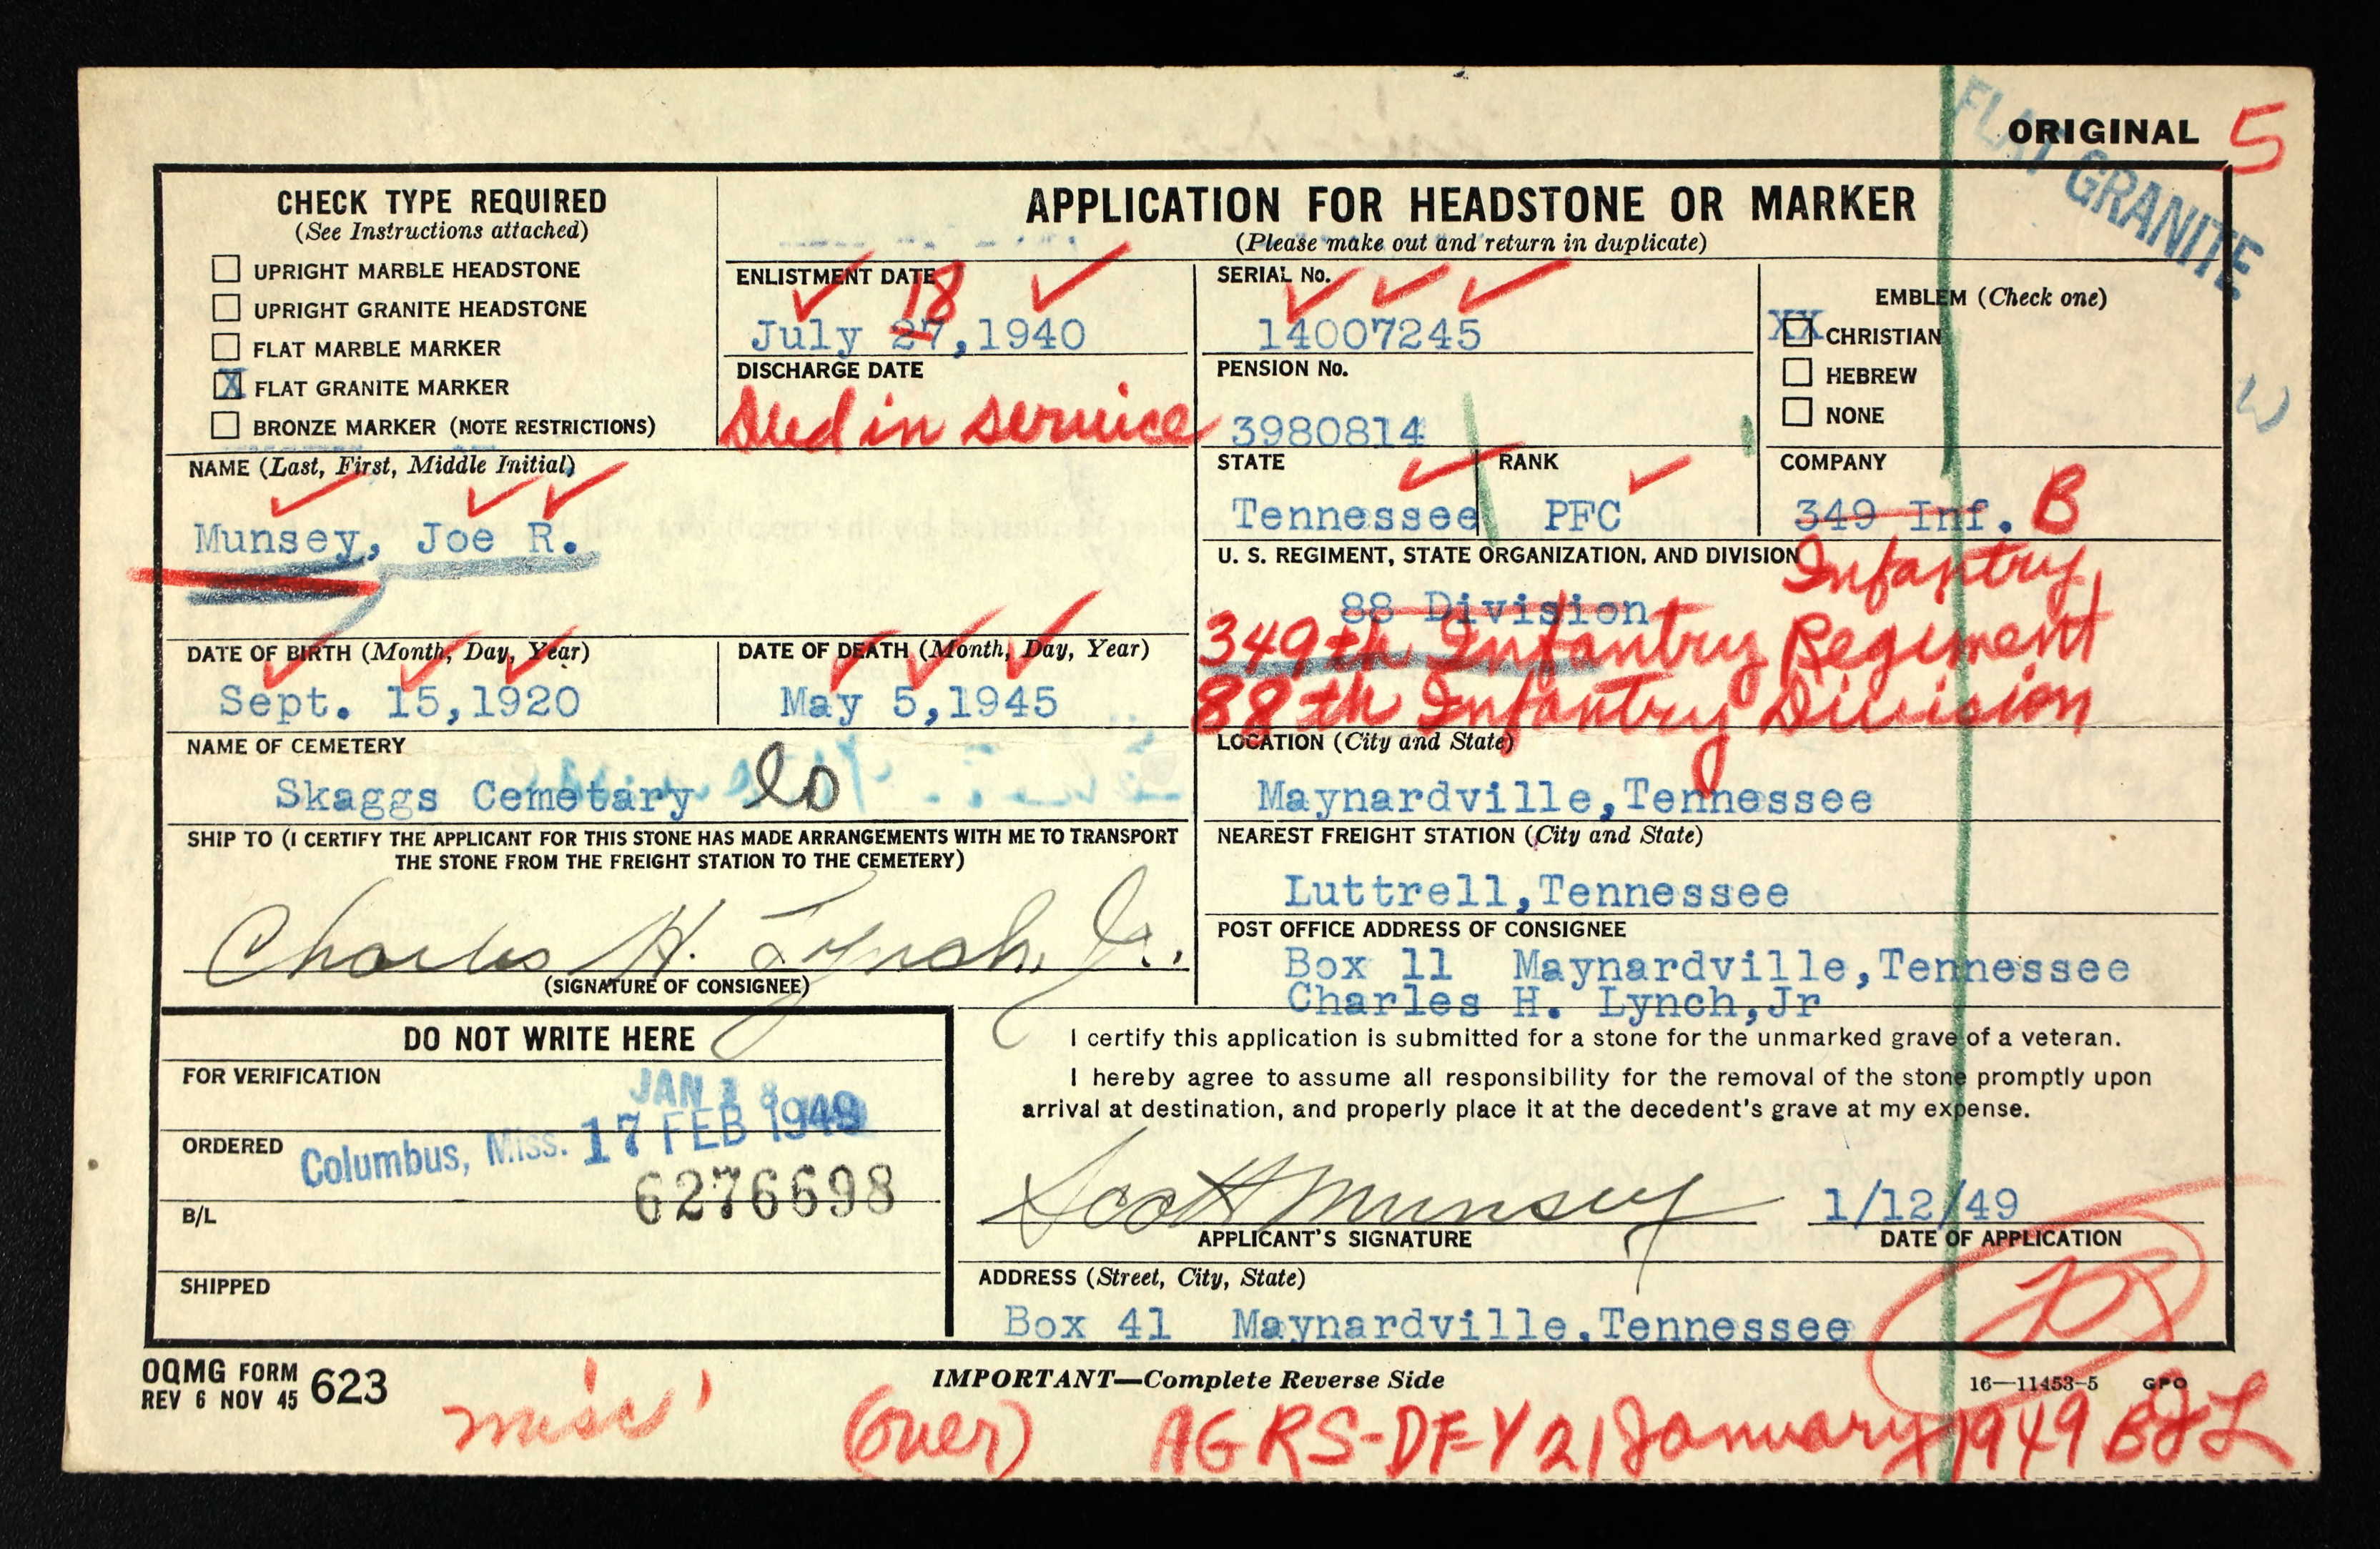 ORIGINAL 5
FLAT GRANITE
CHECK TYPE REQUIRED
(See Instructions attached)
UPRIGHT MARBLE HEADSTONE
UPRIGHT GRANITE HEADSTONE
FLAT MARBLE MARKER
X FLAT GRANITE MARKER
BRONZE MARKER (NOTE RESTRICTIONS)
APPLICATION FOR HEADSTONE OR MARKER
(Please make out and return in duplicate)
ENLISTMENT DATE
18
July 27,1940
DISCHARGE DATE
Died in service
SERIAL No.
14007245
PENSION No.
3980814
EMBLEM (Check one)
XX CHRISTIAN
HEBREW
NONE
W
NAME (Last, First, Middle Initial)
Munsey, Joe R.
STATE
Tennessee
RANK
PFC
COMPANY
349 Inf. B
U. S. REGIMENT, STATE ORGANIZATION, AND DIVISION
Infantry
88 Division
349th Infantry Regiment
88th Infantry Division
DATE OF BIRTH (Month, Day, Year)
Sept. 15,1920
DATE OF DEATH (Month, Day, Year)
May 5,1945
NAME OF CEMETERY
Skaggs Cemetary
LOCATION (City and State)
Maynardville,Tennessee
SHIP TO (I CERTIFY THE APPLICANT FOR THIS STONE HAS MADE ARRANGEMENTS WITH ME TO TRANSPORT
THE STONE FROM THE FREIGHT STATION TO THE CEMETERY)
Charles H. Lynch, Jr.
(SIGNATURE OF CONSIGNEE)
NEAREST FREIGHT STATION (City and State)
Luttrell,Tennessee
POST OFFICE ADDRESS OF CONSIGNEE
Box 11 Maynardville,Tennessee
Charles H. Lynch,Jr
DO NOT WRITE HERE
FOR VERIFICATION
JAN 18 1949
ORDERED
Columbus, Miss. 17 FEB 1949
6276698
B/L
SHIPPED
I certify this application is submitted for a stone for the unmarked grave of a veteran.
I hereby agree to assume all responsibility for the removal of the stone promptly upon
arrival at destination, and properly place it at the decedent's grave at my expense.
Scott Munsey
1/12/49
APPLICANT'S SIGNATURE
DATE OF APPLICATION
ADDRESS (Street, City, State)
Box 41 Maynardville,Tennessee
OQMG FORM 623
REV 6 NOV 45
IMPORTANT—Complete Reverse Side
16—11453-5 GPO
(over)
AGRS-DF-Y 21 January 1949